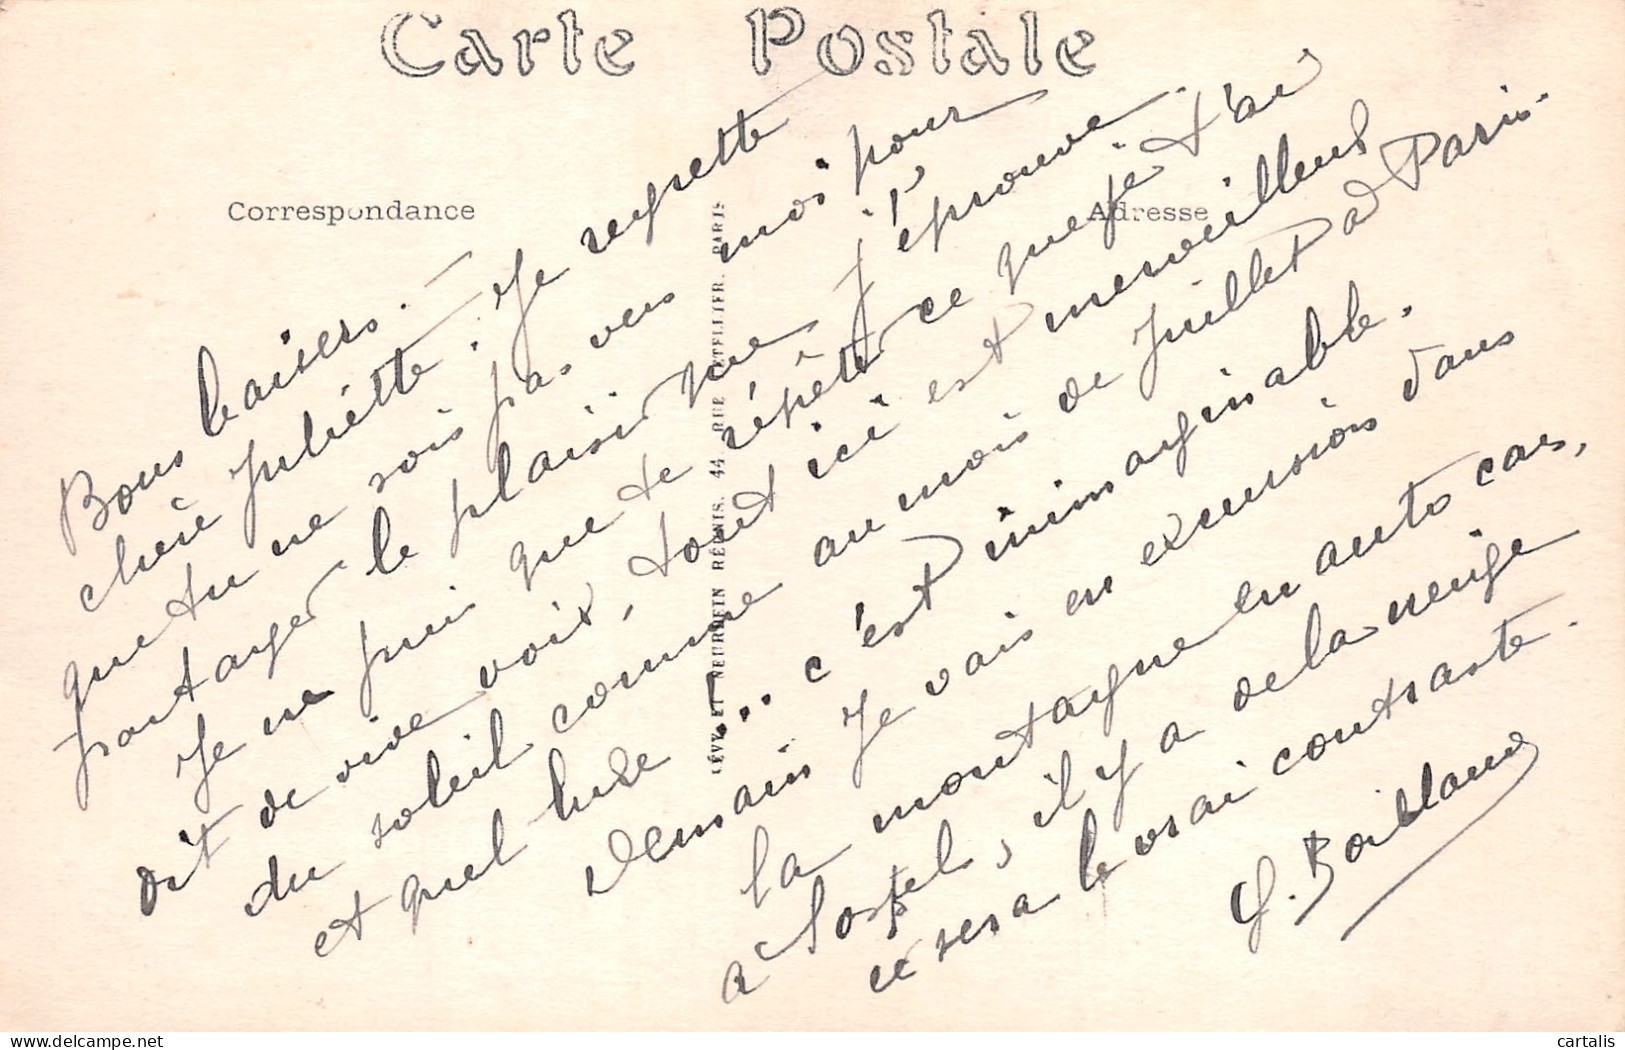 Carte Postale
Correspondance
Adresse
LÉVY ET NEURDEIN RÉUNIS, 44, RUE LETELLIER, PARIS
Bons baisers.
chère Juliette. Je regrette
que tu ne sois pas vers moi pour
partager le plaisir que j'éprouve.
Je ne puis que te répéter ce que je t'ai
dit de vive voix, tout ici est merveilleux
du soleil comme au mois de Juillet à Paris.
et quel luxe ... c'est inimaginable.
Demain je vais en excursion dans
la montagne en auto car,
à Sospel, il y a de la neige
ce sera le vrai contraste.
G.
cartalis